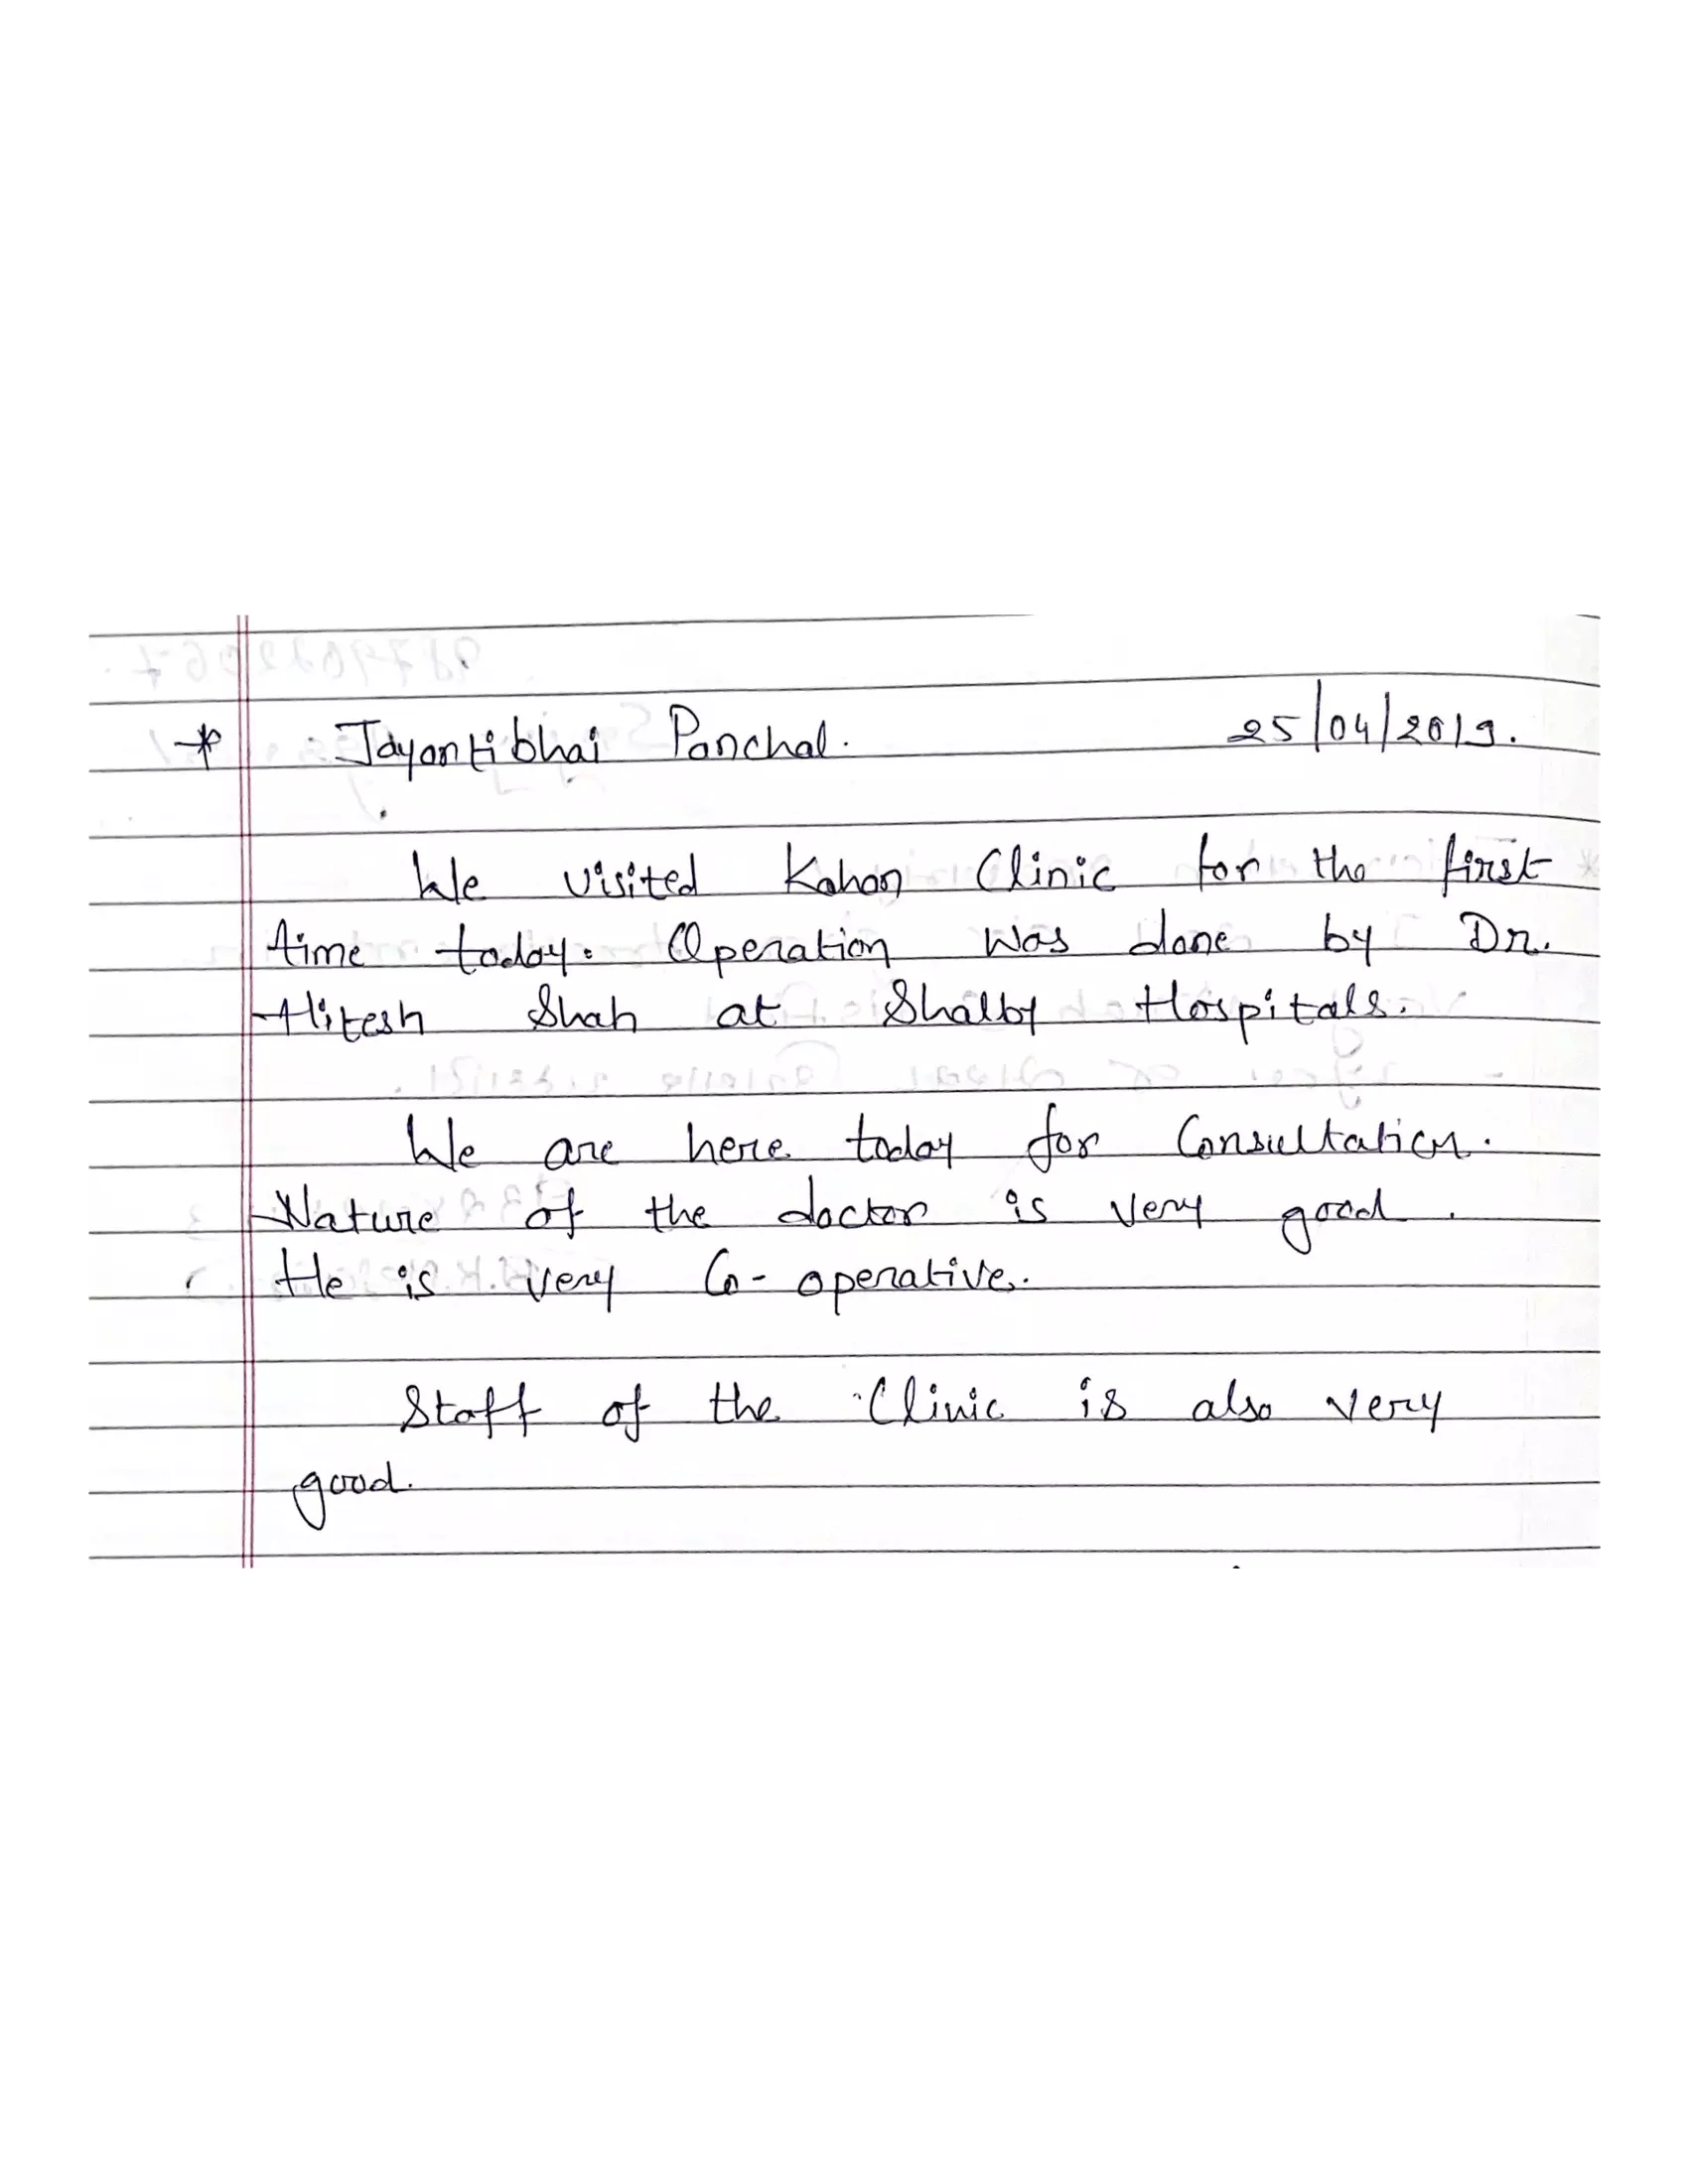 * Jayantibhai Panchal. 25/04/2019.
We visited Kahan Clinic for the first
time today. Operation was done by Dr.
Hitesh Shah at Shalby Hospitals.
We are here today for Consultation.
Nature of the doctor is very good.
He is very Co-operative.
Staff of the Clinic is also very
good.